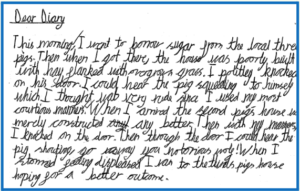 Dear Diary
This morning, I went to borrow sugar from the local three
pigs. Then when I got there, the house was poorly built
with hay flanked with overgrown grass. I politely knocked
on his door. I could hear the pig squealing to himself
which I thought was very rude since I used my most
courteous manners. When I arrived the second pigs house was
merely constructed any better. Then with my manners
I knocked on the door. Then through the door I could hear the
pig shouting go away you notorious wolf. When I
stormed displeased I ran to the thirds pigs house
hoping for a better outcome.